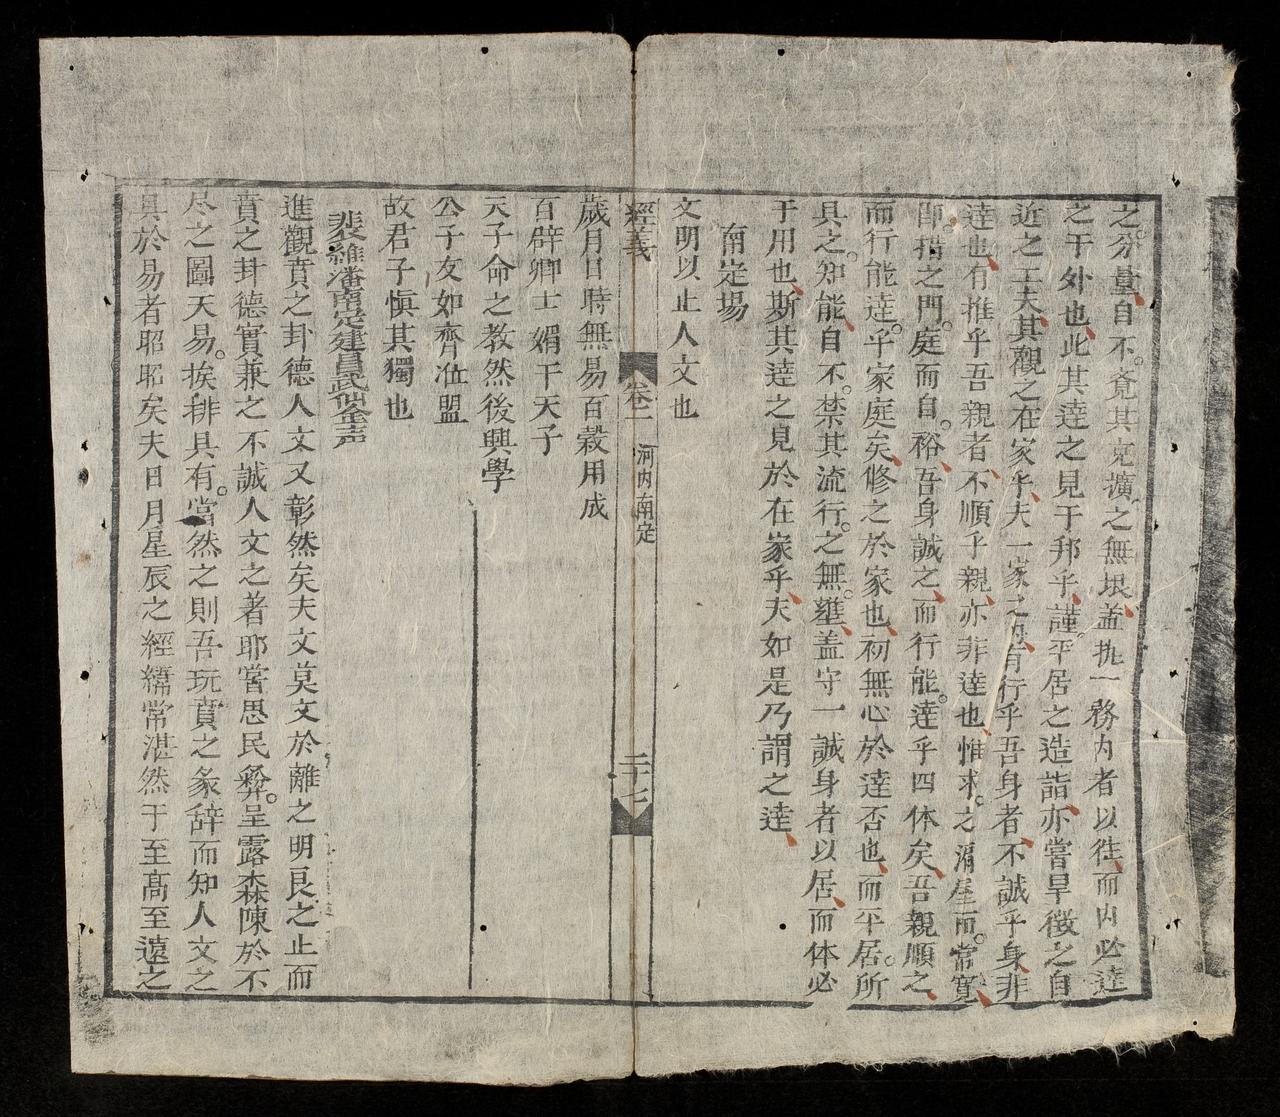 之分量自不竟其克擴之無垠盖執一務内者以徃而内必達
之于外也此其達之見于邦乎謹平居之造詣亦嘗早徴之自
近之工夫其觀之在家乎夫一家之内有行乎吾身者不誠乎身非
達也有推乎吾親者不順乎親亦非達也惟求之涓崖而常寛
即措之門庭而自裕吾身誠之而行能達乎四体矣吾親順之
而行能達乎家庭矣修之於家也初無心於達否也而平居所
具之知能自不禁其流行之無壅盖守一誠身者以居而体必
于用也斯其達之見於在家乎夫如是乃謂之達
南定場
文明以止人文也
經義 卷二 河内南定 二十七
歲月日時無易百穀用成
百辟卿士媚于天子
天子命之教然後興學
公子友如齊涖盟
故君子慎其獨也
裴維潘南定建昌武仙釜声
進觀賁之卦德人文又彰然矣夫文莫文於離之明艮之止而
賁之卦德實兼之不誠人文之著耶嘗思民彜呈露森陳於不
尽之圖天易挨排具有當然之則吾玩賁之彖辞而知人文之
具於易者昭昭矣夫日月星辰之經緯常湛然于至髙至遠之